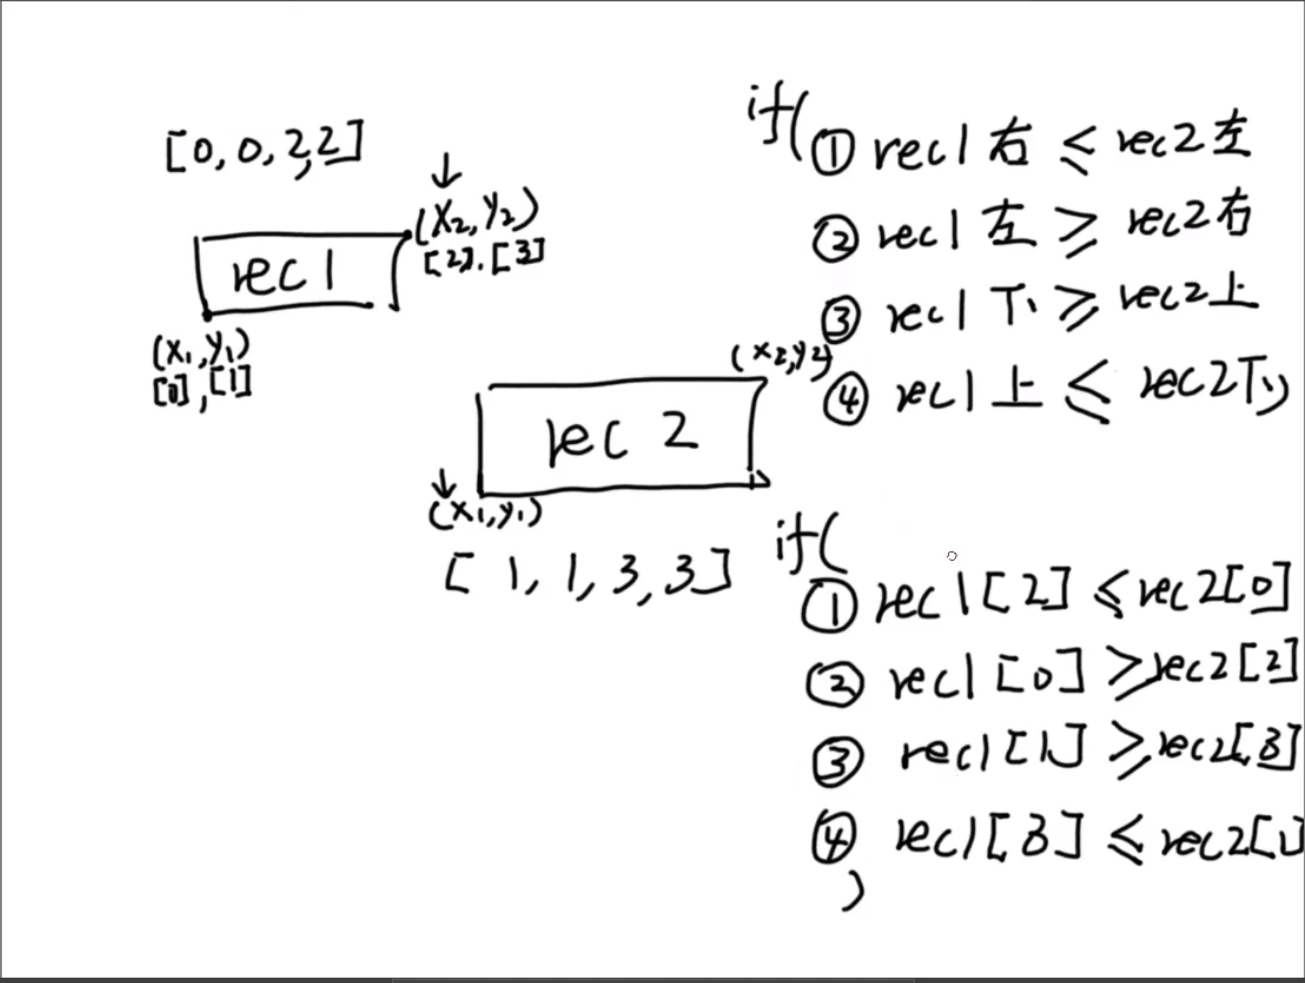 [0, 0, 2, 2]
(x₂, y₂)
[2], [3]
rec 1
(x₁, y₁)
[0], [1]
(x₂, y₂)
rec 2
(x₁, y₁)
[ 1, 1, 3, 3 ]
if(
① rec1 右 ≤ rec2 左
② rec1 左 ≥ rec2 右
③ rec1 下 ≥ rec2 上
④ rec1 上 ≤ rec2 下)
if(
① rec1[2] ≤ rec2[0]
② rec1[0] ≥ rec2[2]
③ rec1[1] ≥ rec2[3]
④ rec1[3] ≤ rec2[1]
)